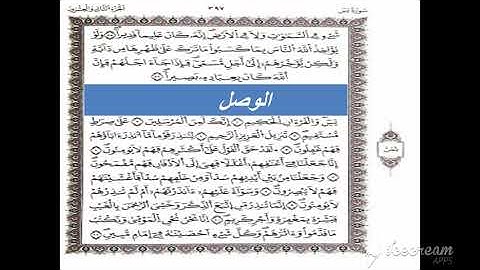 سورة يس ٣٩٧ الجزء الثاني والعشرون
شيء في السموت ولا في الأرض إنه كان عليما قديرا ولو
يؤاخذ الله الناس بما كسبوا ما ترك على ظهرها من دابة
ولكن يؤخرهم إلى أجل مسمى فإذا جاء أجلهم فإن
الله كان بعباده بصيرا
الوصل
يس والقرءان الحكيم إنك لمن المرسلين على صرط
مستقيم تنزيل العزيز الرحيم لتنذر قوما ما أنذر ءاباؤهم
فهم غفلون لقد حق القول على أكثرهم فهم لا يؤمنون
إنا جعلنا في أعنقهم أغللا فهي إلى الأذقان فهم مقمحون
وجعلنا من بين أيديهم سدا ومن خلفهم سدا فأغشينهم
فهم لا يبصرون وسواء عليهم ءأنذرتهم أم لم تنذرهم
لا يؤمنون إنما تنذر من اتبع الذكر وخشي الرحمن بالغيب
فبشره بمغفرة وأجر كريم إنا نحن نحي الموتى ونكتب
ما قدموا وءاثرهم وكل شيء أحصينه في إمام مبين
icecream
APPS